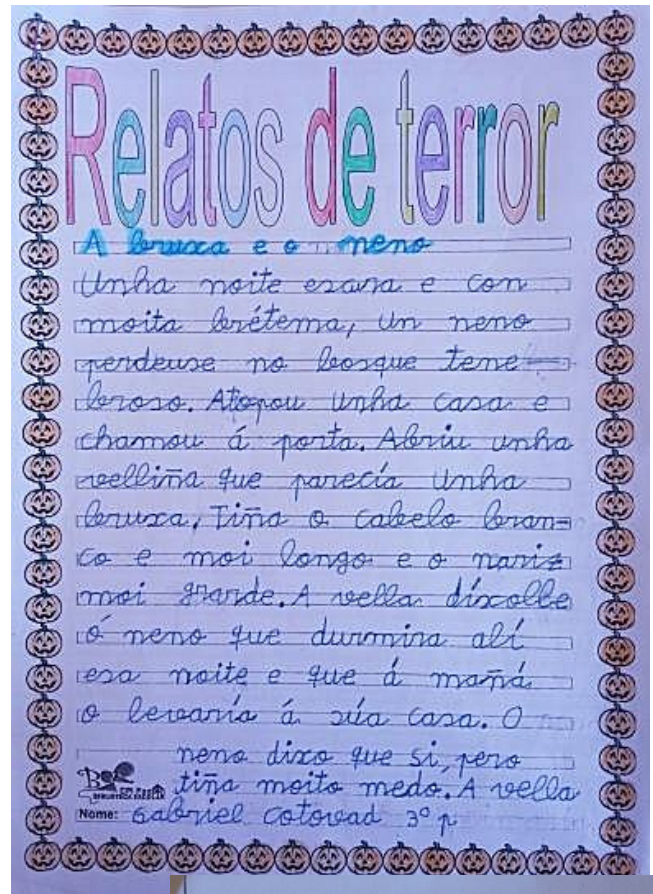 Relatos de terror
A bruxa e o neno
Unha noite escura e con
moita brétema, un neno
perdeuse no bosque tene-
broso. Atopou unha casa e
chamou á porta. Abriu unha
velliña que parecía unha
bruxa, Tiña o cabelo bran-
co e moi longo e o nariz
moi grande. A vella díxolle
ó neno que durmira alí
esa noite e que á mañá
o levaría á súa casa. O
neno dixo que si, pero
tiña moito medo. A vella
Nome: Gabriel Cotovad 3º p